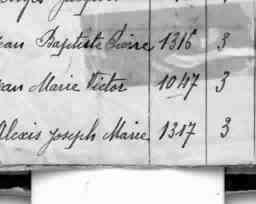 ean Baptiste Pierre 1316 3
ean Marie Victor 1047 3
Alexis Joseph Marie 1317 3